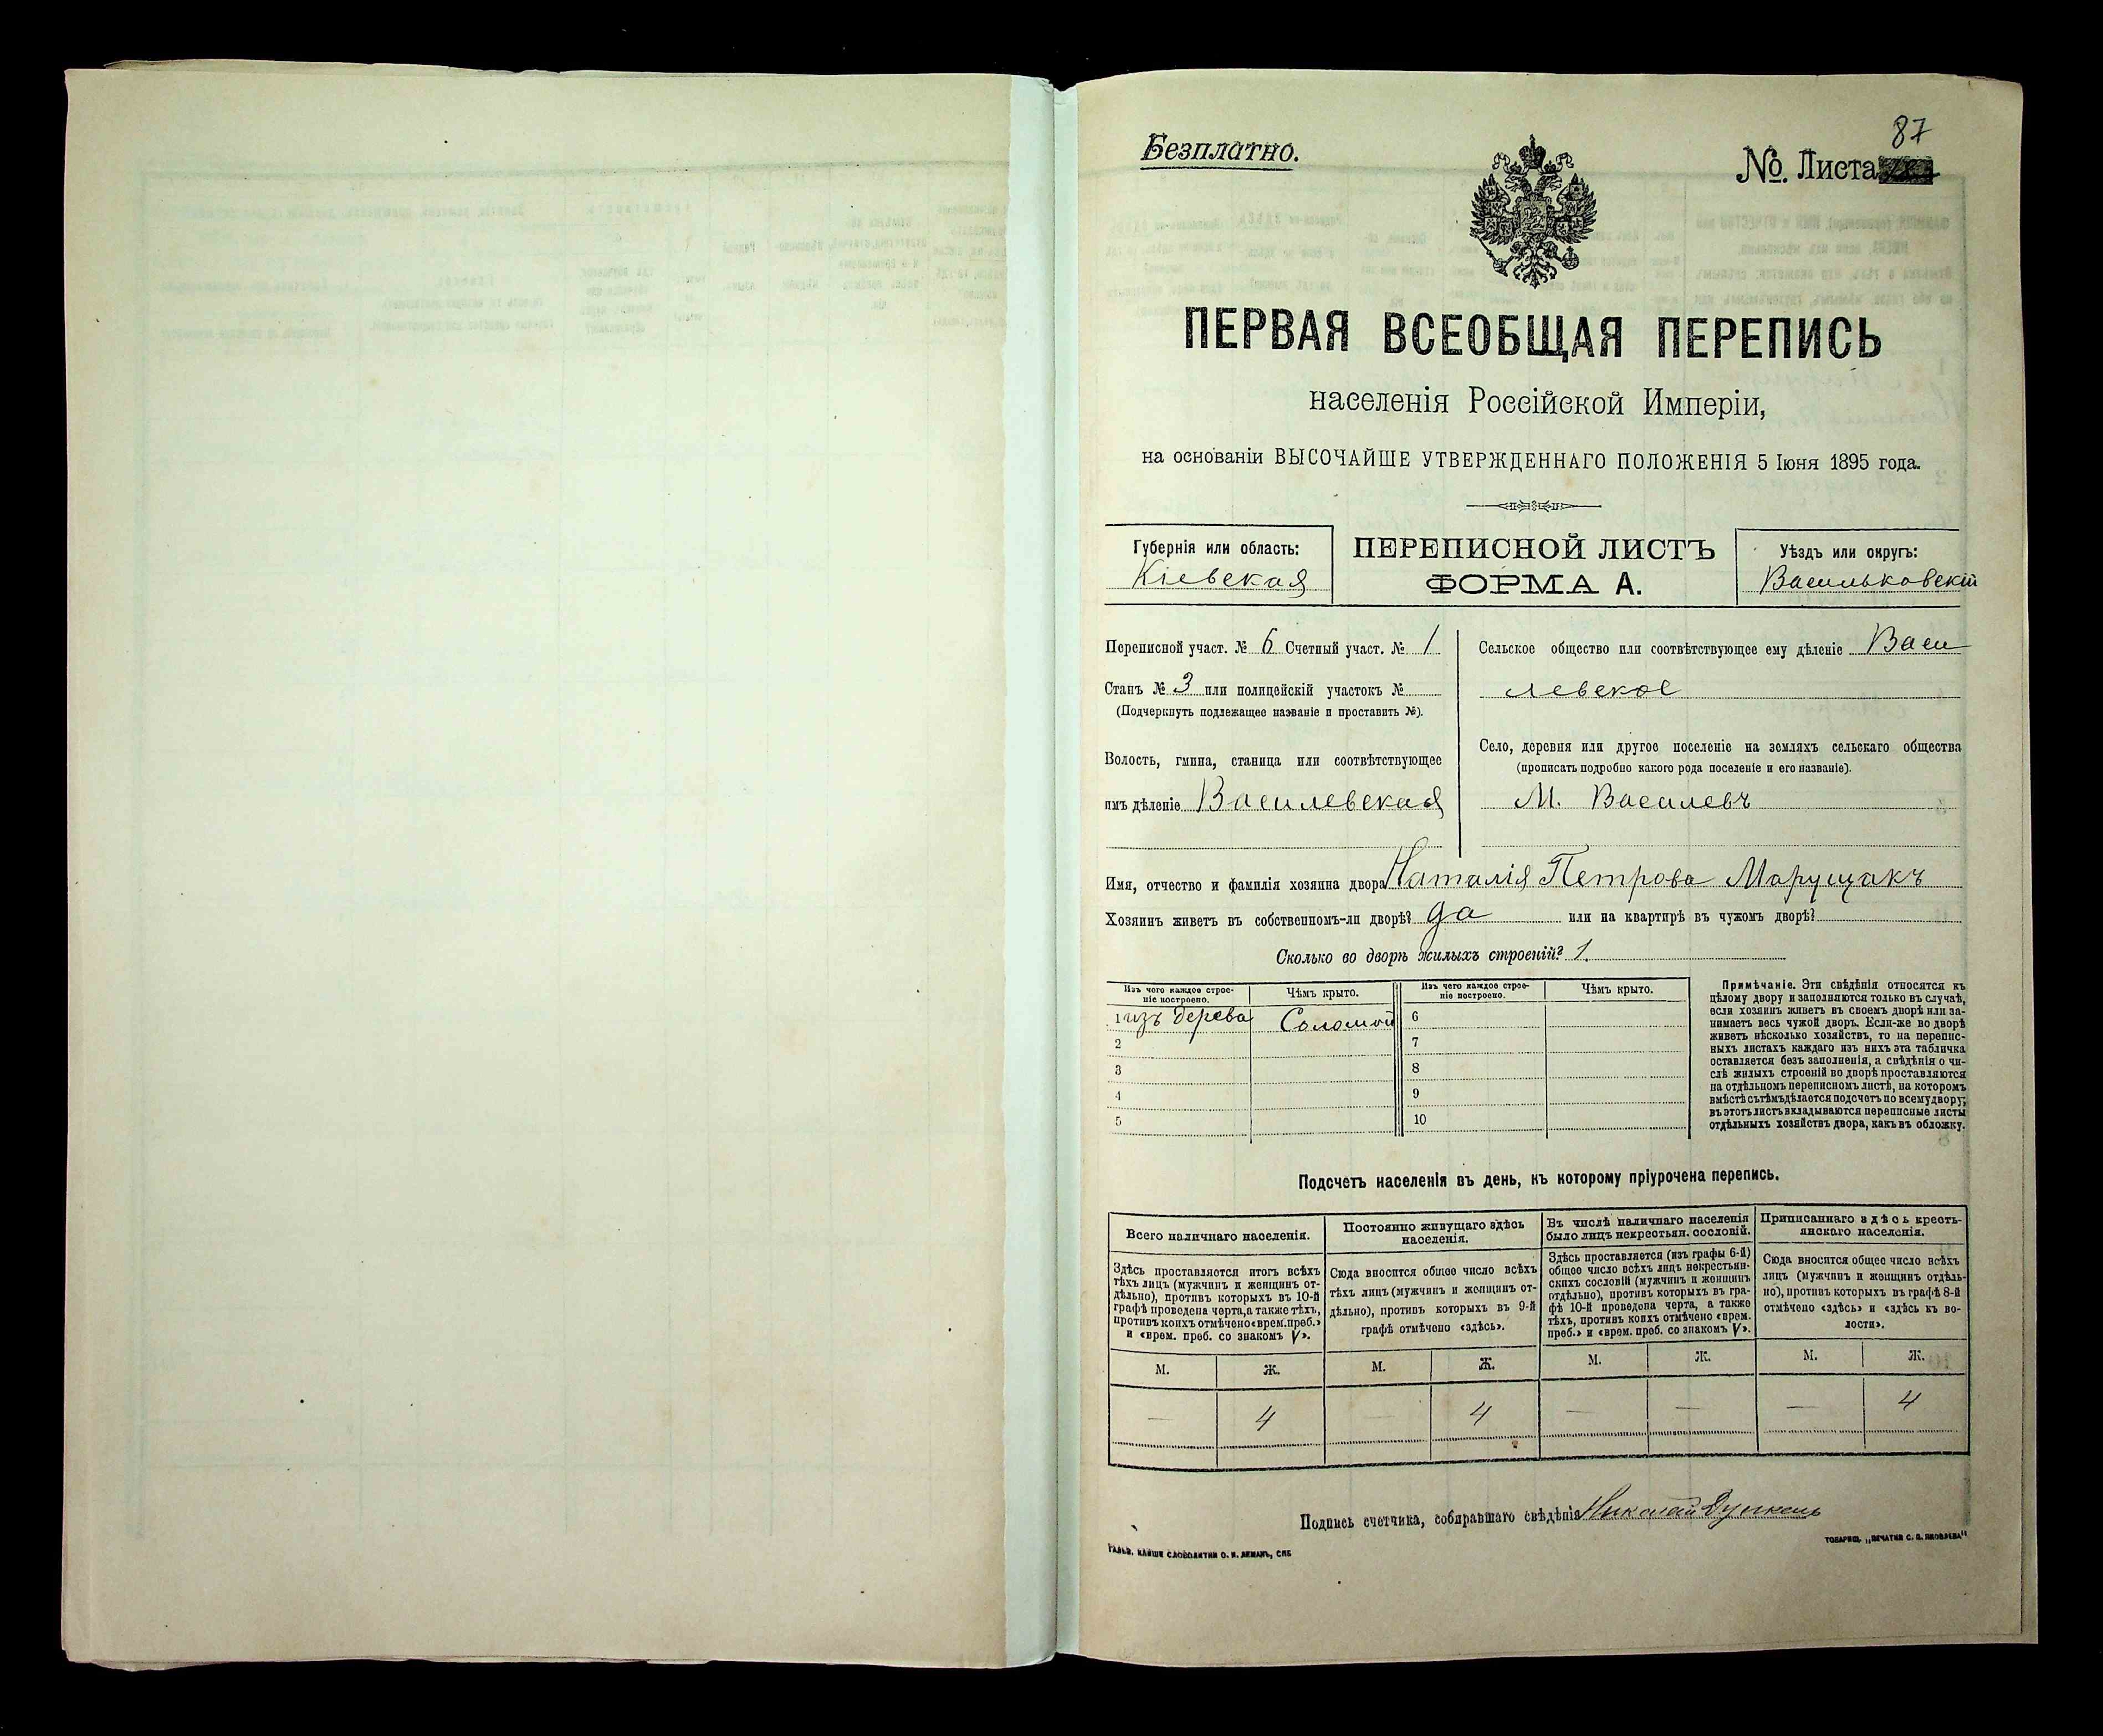 87
Безплатно.
№ Листа
ПЕРВАЯ ВСЕОБЩАЯ ПЕРЕПИСЬ
населенія Россійской Имперіи,
на основаніи ВЫСОЧАЙШЕ УТВЕРЖДЕННАГО ПОЛОЖЕНІЯ 5 Іюня 1895 года.
Губернія или область:
Кіевская
ПЕРЕПИСНОЙ ЛИСТЪ
ФОРМА А.
Уѣздъ или округъ:
Васильковскій
Переписной участ. № 6 Счетный участ. № 1
Станъ № 3 или полицейскій участокъ №
(Подчеркнуть подлежащее названіе и проставить №).
Волость, гмина, станица или соотвѣтствующее
имъ дѣленіе Василевская
Сельское общество или соотвѣтствующее ему дѣленіе Васи
левское
Село, деревня или другое поселеніе на земляхъ сельскаго общества
(прописать подробно какого рода поселеніе и его названіе).
М. Василевъ
Имя, отчество и фамилія хозяина двора Наталія Петрова Марущакъ
Хозяинъ живетъ въ собственномъ-ли дворѣ? да или на квартирѣ въ чужомъ дворѣ?
Сколько во дворѣ жилыхъ строеній? 1.
Изъ чего каждое строе-
ніе построено.
Чѣмъ крыто.
Изъ чего каждое строе-
ніе построено.
Чѣмъ крыто.
1 изъ дерева Соломой 6
2 7
3 8
4 9
5 10
Примѣчаніе. Эти свѣдѣнія относятся къ
цѣлому двору и заполняются только въ случаѣ,
если хозяинъ живетъ въ своемъ дворѣ или за-
нимаетъ весь чужой дворъ. Если-же во дворѣ
живетъ нѣсколько хозяйствъ, то на перепис-
ныхъ листахъ каждаго изъ нихъ эта табличка
оставляется безъ заполненія, а свѣдѣнія о чи-
слѣ жилыхъ строеній во дворѣ проставляются
на отдѣльномъ переписномъ листѣ, на которомъ
вмѣстѣ съ тѣмъ дѣлается подсчетъ по всему двору;
въ этотъ листъ вкладываются переписные листы
отдѣльныхъ хозяйствъ двора, какъ въ обложку.
Подсчетъ населенія въ день, къ которому пріурочена перепись.
Всего наличнаго населенія.
Здѣсь проставляется итогъ всѣхъ
тѣхъ лицъ (мужчинъ и женщинъ от-
дѣльно), противъ которыхъ въ 10-й
графѣ проведена черта, а также тѣхъ,
противъ коихъ отмѣчено «врем. преб.»
и «врем. преб. со знакомъ V».
Постоянно живущаго здѣсь
населенія.
Сюда вносится общее число всѣхъ
тѣхъ лицъ (мужчинъ и женщинъ от-
дѣльно), противъ которыхъ въ 9-й
графѣ отмѣчено «здѣсь».
Въ числѣ наличнаго населенія
было лицъ некрестьян. сословій.
Здѣсь проставляется (изъ графы 6-й)
общее число всѣхъ лицъ некрестьян-
скихъ сословій (мужчинъ и женщинъ
отдѣльно), противъ которыхъ въ гра-
фѣ 10-й проведена черта, а также
тѣхъ, противъ коихъ отмѣчено «врем.
преб.» и «врем. преб. со знакомъ V».
Приписаннаго здѣсь кресть-
янскаго населенія.
Сюда вносится общее число всѣхъ
лицъ (мужчинъ и женщинъ отдѣль-
но), противъ которыхъ въ графѣ 8-й
отмѣчено «здѣсь» и «здѣсь къ во-
лости».
М. Ж. М. Ж. М. Ж. М. Ж.
— 4 — 4 — — — 4
Подпись счетчика, собиравшаго свѣдѣнія Николай
ГАЛЬВ. КЛИШЕ СЛОВОЛИТНИ О. И. ЛЕМАНЪ, СПБ
ТОВАРИЩ. „ПЕЧАТНИ С. П. ЯКОВЛЕВА"